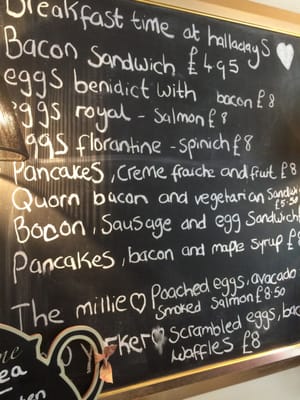 Breakfast time at halladays
Bacon Sandwich £4.95
eggs benidict with bacon £8
eggs royal - Salmon £8
eggs florantine - spinich £8
Pancakes, creme fraiche and fruit £8
Quorn bacon and vegetarian Sandwich £5.50
Bacon, Sausage and egg Sandwich
Pancakes, bacon and maple syrup £8
The millie Poached eggs, avocado
Smoked Salmon £8.50
Scrambled eggs, bac
waffles £8